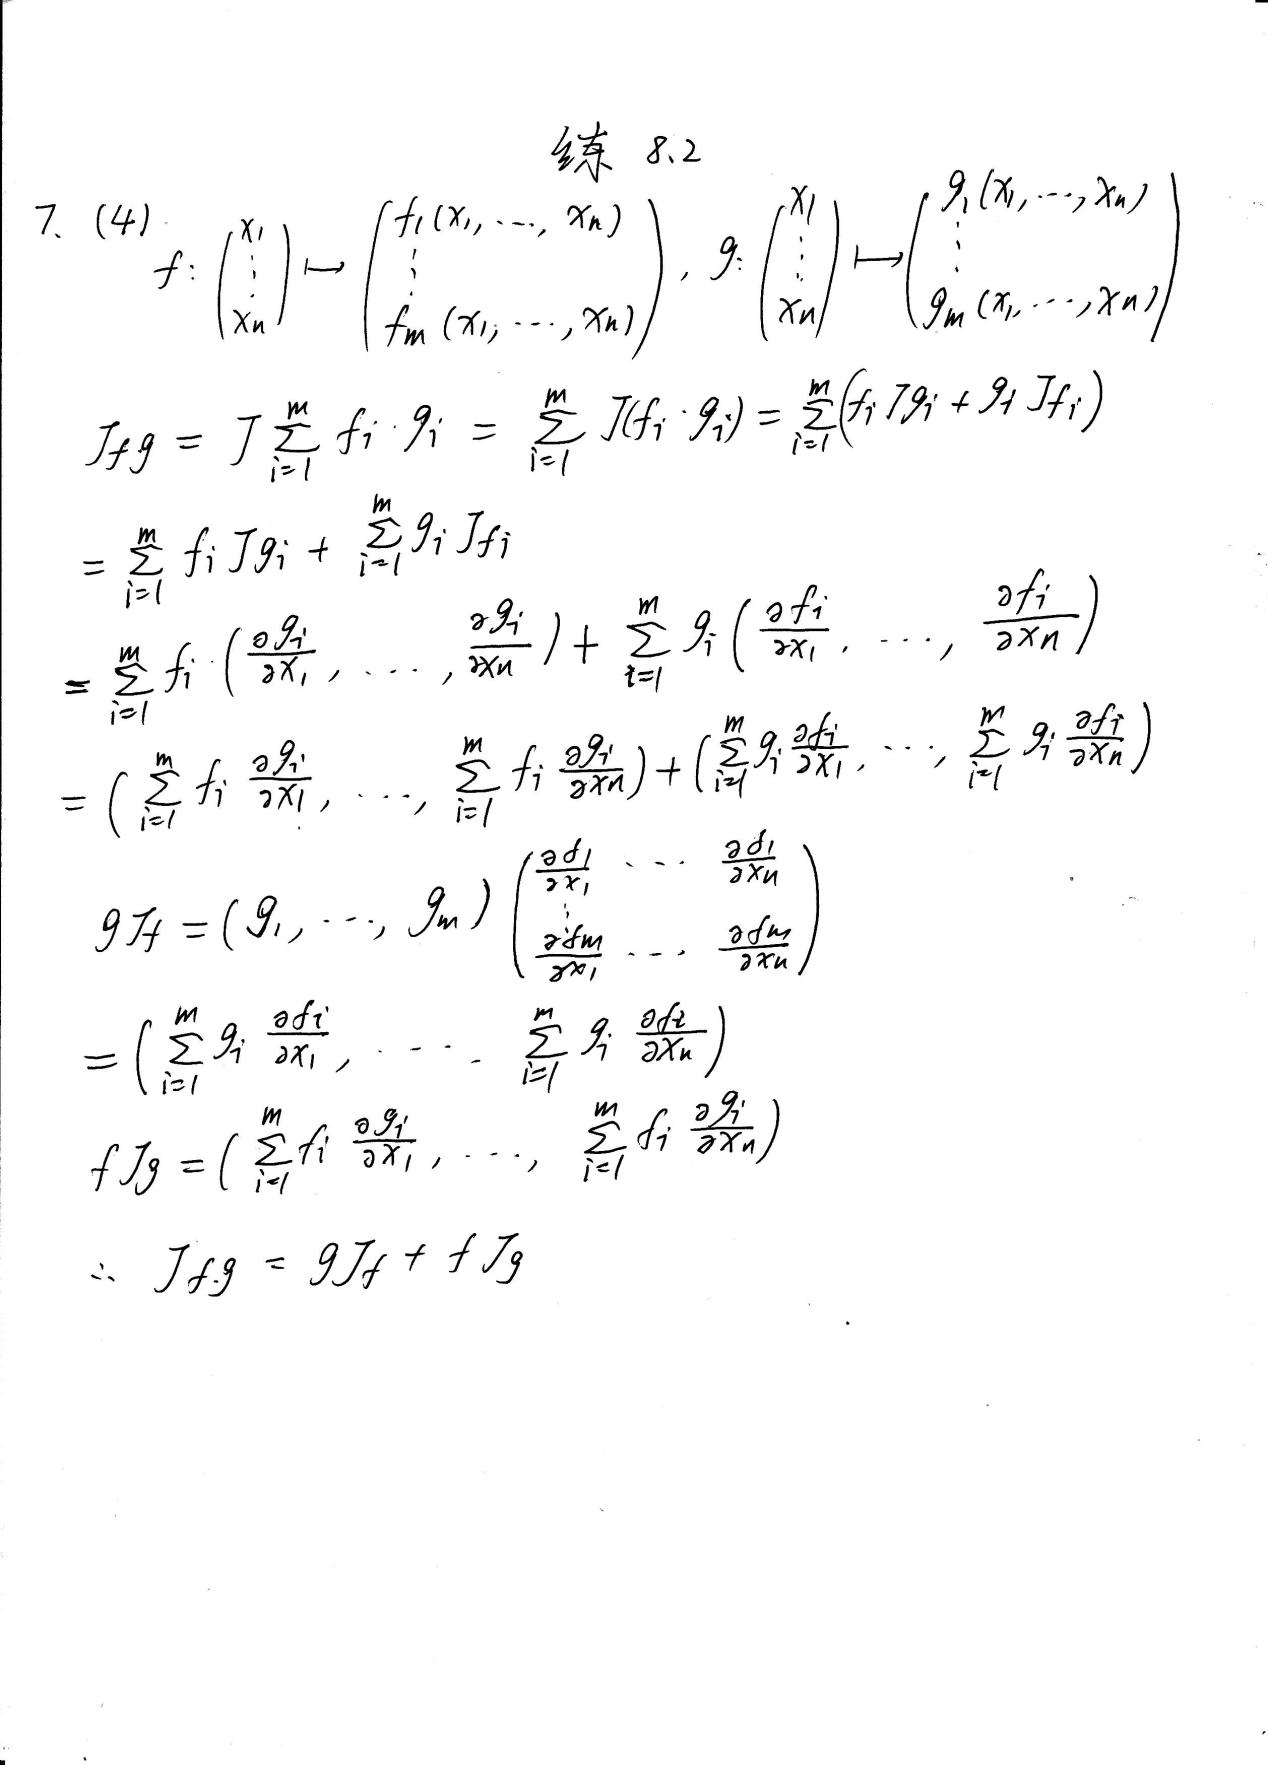 练 8.2
7. (4) f: (x₁ ⋮ xₙ) ↦ (f₁(x₁, ..., xₙ) ⋮ fₘ(x₁, ..., xₙ)), g: (x₁ ⋮ xₙ) ↦ (g₁(x₁, ..., xₙ) ⋮ gₘ(x₁, ..., xₙ))
Jfg = J∑_{i=1}^{m} fᵢ·gᵢ = ∑_{i=1}^{m} J(fᵢ·gᵢ) = ∑_{i=1}^{m}(fᵢ Jgᵢ + gᵢ Jfᵢ)
= ∑_{i=1}^{m} fᵢ Jgᵢ + ∑_{i=1}^{m} gᵢ Jfᵢ
= ∑_{i=1}^{m} fᵢ·(∂gᵢ/∂x₁, ..., ∂gᵢ/∂xₙ) + ∑_{i=1}^{m} gᵢ(∂fᵢ/∂x₁, ..., ∂fᵢ/∂xₙ)
= (∑_{i=1}^{m} fᵢ ∂gᵢ/∂x₁, ..., ∑_{i=1}^{m} fᵢ ∂gᵢ/∂xₙ) + (∑_{i=1}^{m} gᵢ ∂fᵢ/∂x₁, ..., ∑_{i=1}^{m} gᵢ ∂fᵢ/∂xₙ)
gJf = (g₁, ..., gₘ) (∂f₁/∂x₁ ... ∂f₁/∂xₙ ⋮ ∂fₘ/∂x₁ ... ∂fₘ/∂xₙ)
= (∑_{i=1}^{m} gᵢ ∂fᵢ/∂x₁, .... ∑_{i=1}^{m} gᵢ ∂fᵢ/∂xₙ)
fJg = (∑_{i=1}^{m} fᵢ ∂gᵢ/∂x₁, ..., ∑_{i=1}^{m} fᵢ ∂gᵢ/∂xₙ)
∴ Jf·g = gJf + fJg